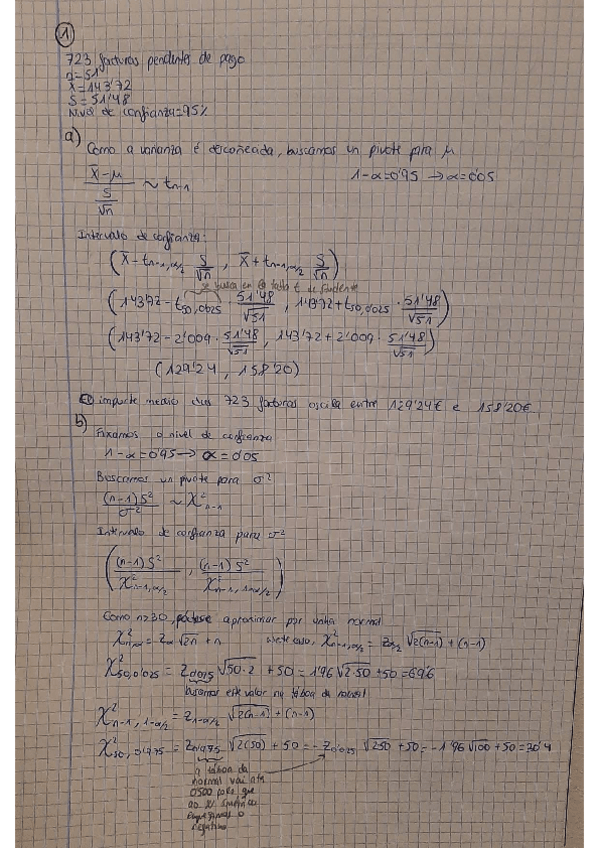 1
723 facturas pendentes de pago
n=51
x̄=143'72
S=51'48
Nivel de confianza=95%
a)
Como a varianza é descoñecada, buscamos un pivote para μ
(x̄-μ)/(S/√n) ~ t_{n-1}    1-α=0'95 → α=0'05
Intervalo de confianza:
(x̄-t_{n-1,α/2} S/√n , x̄+t_{n-1,α/2} S/√n)
se busca en la tabla t de Student
(143'72-t_{50,0'025} 51'48/√51 , 143'72+t_{50,0'025} · 51'48/√51)
(143'72-2'009 · 51'48/√51 , 143'72+2'009 · 51'48/√51)
(129'24, 158'20)
importe medio das 723 facturas oscila entre 129'24€ e 158'20€
b)
Fixamos o nivel de confianza
1-α=0'95 → α=0'05
Buscamos un pivote para σ²
(n-1)S²/σ² ~ χ²_{n-1}
Intervalo de confianza para σ²
((n-1)S²/χ²_{n-1,α/2} , (n-1)S²/χ²_{n-1,1-α/2})
Como n>30, pódese aproximar por unha normal
χ²_{n,α} = z_α √2n + n    neste caso, χ²_{n-1,α/2} = z_{α/2} √2(n-1) + (n-1)
χ²_{50,0'025} = z_{0'025} √50·2 + 50 = 1'96 √2·50 + 50 = 69'6
buscamos este valor na táboa da normal
χ²_{n-1,1-α/2} = z_{1-α/2} √2(n-1) + (n-1)
χ²_{50,0'975} = z_{0'975} √2(50) + 50 = -z_{0'025} √2·50 + 50 = -1'96 √100 + 50 = 30'4
a táboa da
normal vai ata
0'500 polo que
negativo